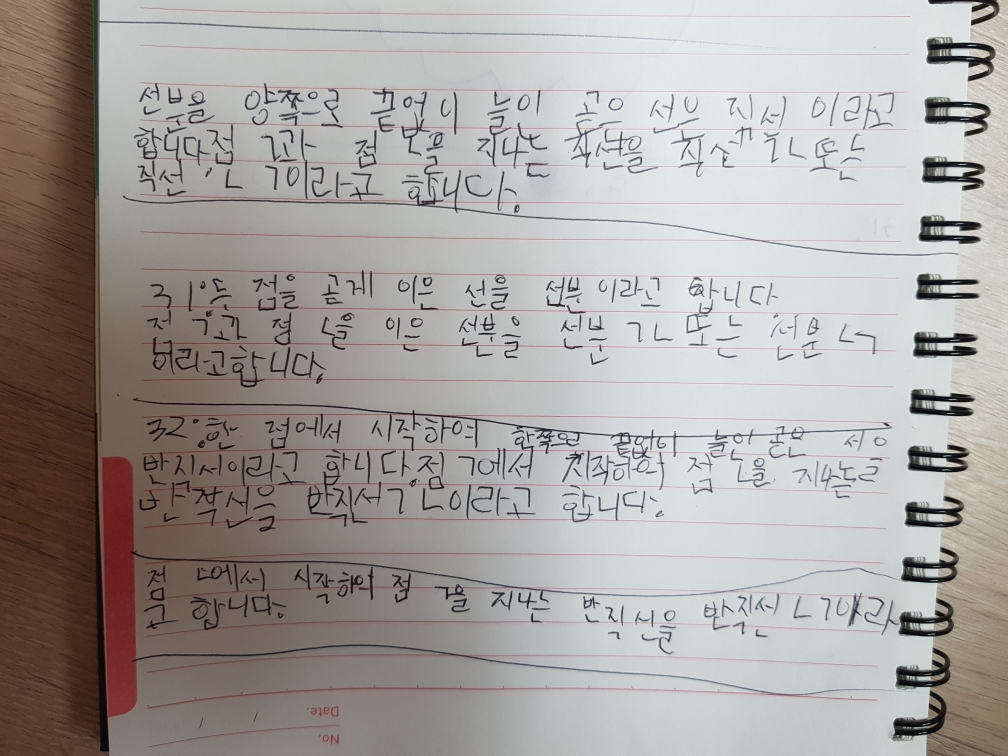 선분을 양쪽으로 끝없이 늘인 곧은 선은 직선 이라고
합니다.점 ㄱ과 점 ㄴ을 지나는 직선을 직선 ㄱㄴ 또는
직선 ㄴㄱ이라고 합니다.
31°두 점을 곧게 이은 선을 선분이라고 합니다
점 ㄱ과 점 ㄴ을 이은 선분을 선분 ㄱㄴ 또는 선분 ㄴㄱ
이라고합니다.
32°한 점에서 시작하여 한쪽으로 끝없이 늘인 곧은 선을
반직선이라고 합니다.점 ㄱ에서 시작하여 점 ㄴ을 지나는
반직선을 반직선ㄱㄴ이라고 합니다.
점 ㄴ에서 시작하여 점 ㄱ을 지나는 반직선을 반직선 ㄴㄱ이라
고 합니다.
Date.
No.